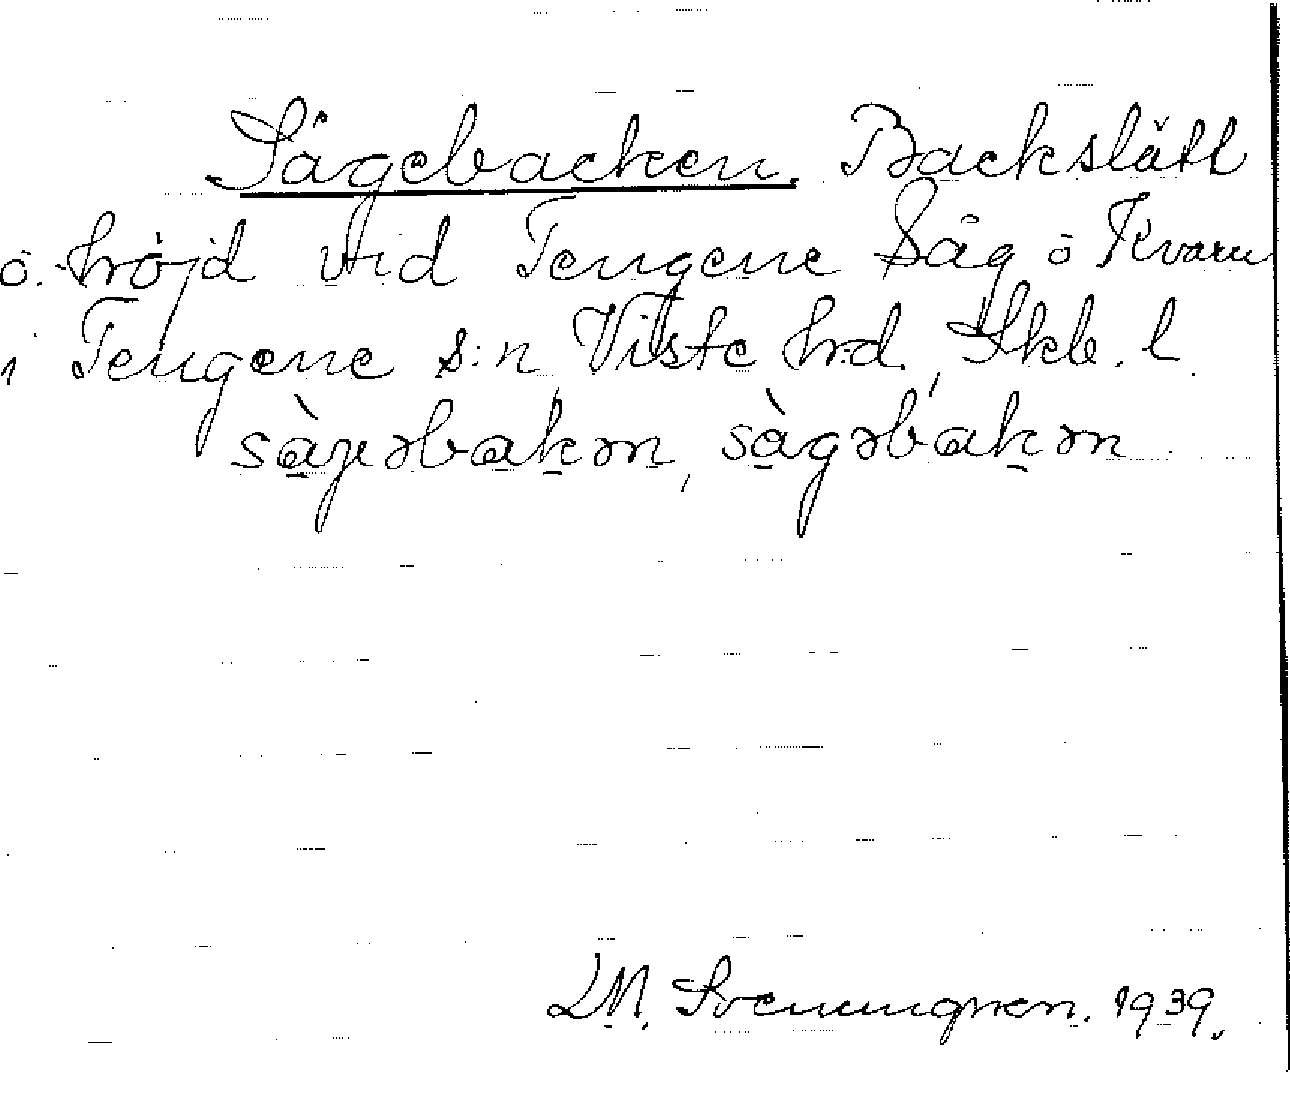 Sågebacken. Backslätt
o. höjd vid Tengene Såg o Kvarn
i Tengene s:n, Viste h:d, Skb. l.
sàgəbakən, sàgəbakən
L.M. Svenungsson. 1939.